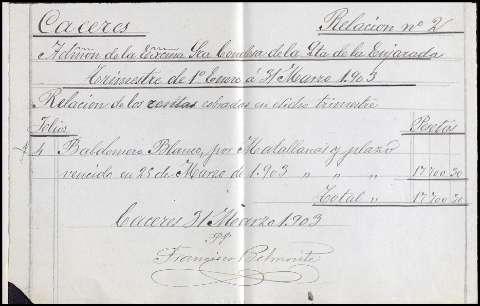 Caceres Relacion nº 2
Admon de la Excma Sra Condesa de la Qta de la Enjarada
Trimestre de 1º Enero á 31 Marzo 1.903
Relacion de las rentas cobradas en dicho trimestre
Folios Pesetas
4 Baldomero Blanco, por Matallanas y plazo
vencido en 25 de Marzo de 1.903 " " " 17.700 50
Total " 17.700 50
Caceres 31 Marzo 1.903
P.P.
Francisco Belmonte